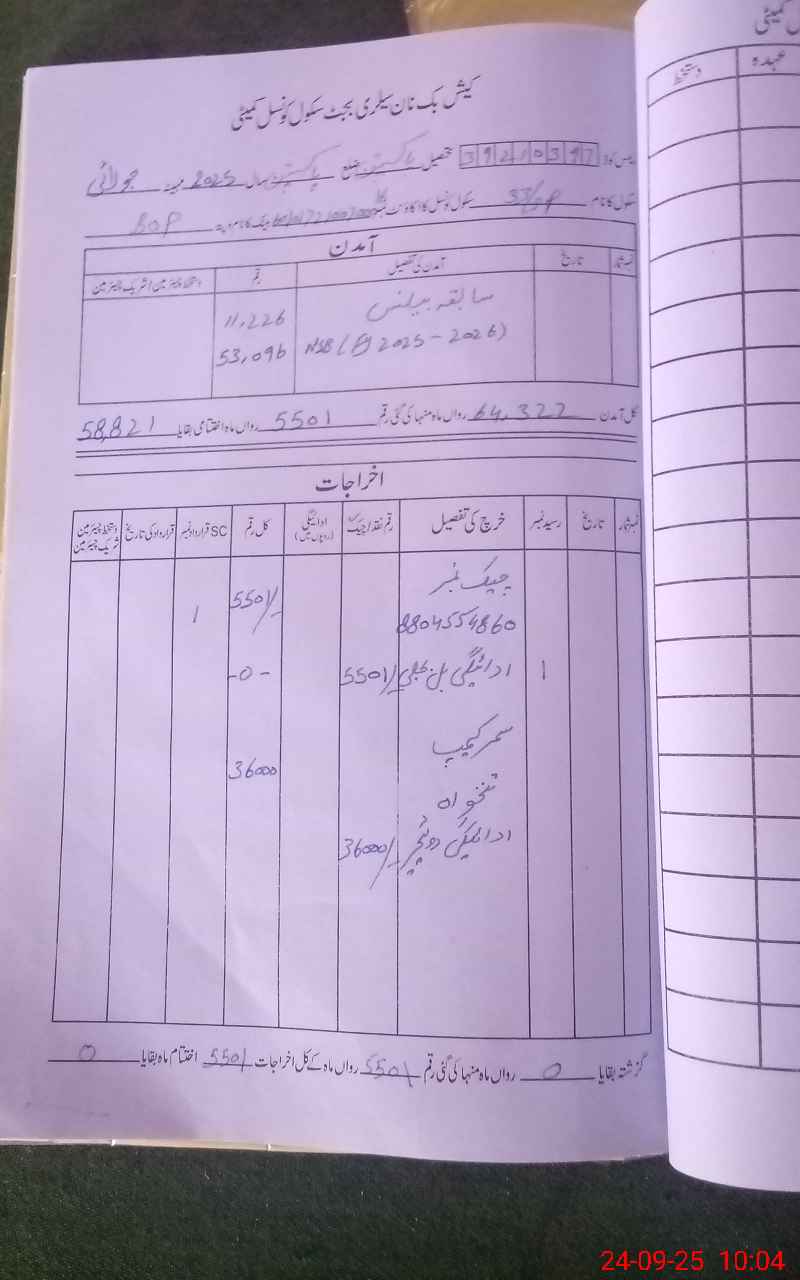 کیش بک نان سیلری بجٹ سکول کونسل کمیٹی
ایمس کوڈ 39210397 تحصیل پاکپتن ضلع پاکپتن سال 2025 مہینہ جولائی
سکول کا نام 33/SP سکول کونسل کا اکاؤنٹ نمبر بینک کا نام و پتہ BOP
آمدن
نمبر شمار تاریخ آمدن کی تفصیل رقم دستخط چیئرمین / شریک چیئرمین
سابقہ بیلنس 11,226
NSB (FJ 2025-2026) 53,096
کل آمدن 64,322 رواں ماہ منہا کی گئی رقم 5501 رواں ماہ اختتامی بقایا 58,821
اخراجات
نمبر شمار تاریخ رسید نمبر خرچ کی تفصیل رقم نقد / چیک ادائیگی (روپوں میں) کل رقم SC قرارداد نمبر قرارداد کی تاریخ دستخط چیئرمین شریک چیئرمین
چیک نمبر 5501/- 1
8804554860
1 ادائیگی بل بجلی 5501/- -0-
سمر کیمپ 36000
تنخواہ
ادائیگی دو ٹیچر 36000/-
گزشتہ بقایا 0 رواں ماہ منہا کی گئی رقم 5501 رواں ماہ کے کل اخراجات 5501 اختتام ماہ بقایا 0
دستخط عہدہ
24-09-25 10:04